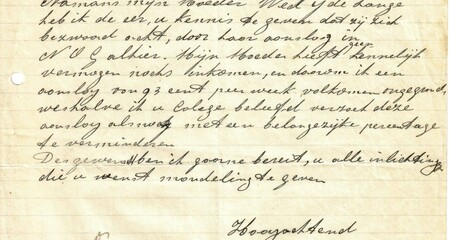 Namens mijn Moeder Wed Y de Lange
heb ik de eer, u kennis te geven dat zij zich
bezwaard acht, door haar aanslag in
N O G alhier. Mijn Moeder heeft geen kennelijk
vermogen noch inkomen, en daarom is een
aanslag van 93 cent per week volkomen ongegrond,
weshalve ik u Colege beleefd verzoek deze
aanslag alsnog met een belangrijke percentage
te verminderen
Desgewenst ben ik gaarne bereid, u alle inlichting
die u wenst mondeling te geven
Hoogachtend